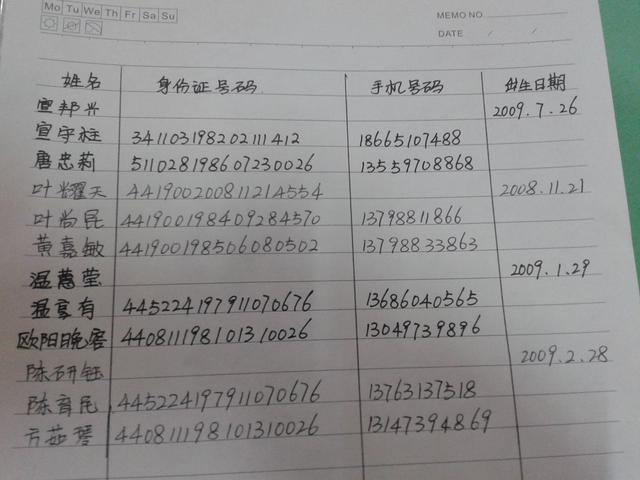 Mo Tu We Th Fr Sa Su
MEMO NO.
DATE / /
姓名 身份证号码 手机号码 出生日期
宣邦兴 2009.7.26
宣宇柱 341103198202111412 18665107488
唐忠莉 511028198607230026 13559708868
叶耀天 441900200811214554 2008.11.21
叶尚昆 441900198409284570 13798811866
黄嘉敏 441900198506080502 13798833863
温莺莹 2009.1.29
温享有 445224197911070676 13686040565
欧阳晚霞 440811198101310026 13049739896
陈研钰 2009.2.28
陈育民 445224197911070676 13763137518
方茹 440811198101310026 13147394869